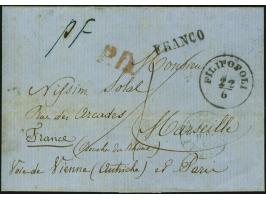 pf
P.D.
FRANCO
FILIPOPOLI
22/6
Monsieur
Nissim Solal
Rue des Arcades
Marseille
France
(Bouches du Rhône)
Voie de Vienne (Autriche) et Paris